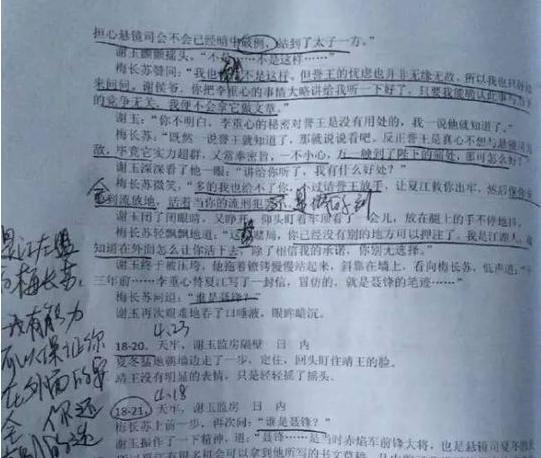 担心悬镜司会不会已经暗中破例，站到了太子一方。”
谢玉颤颤摇头，“不是……不是这样……”
梅长苏赞同：“我也不是这样。但誉王的忧虑也并非无缘无故，所以我也只好
来问问。谢侯爷，你把李重心的事情大略讲给我听一下好了，只要我能确认此事与
的竞争无关，我便不会拿它做文章。”
谢玉：“你不明白，李重心的秘密对誉王是没有用处的，我一说他就知道了。”
梅长苏：“既然一说誉王就知道了，那就说说看吧。反正誉王是真心不想与悬镜司
敌，毕竟它实力超群，又常奉密旨，一不小心，万一碰到了陛下的痛处，那可怎么好？”
谢玉深深看了他一眼：“讲给你听了，我有什么好处？”
梅长苏微笑，“多的我也给不了你，不过请誉王放手，让夏江救你出牢，然后保你安
全到流放地，活着当你的流刑犯
谢玉闭了闭眼睛，又睁开，仰头盯着牢顶 会儿，放在腿上的手不停地抖。
梅长苏轻飘飘地道：“这 赌局，你已经没有别的地方可以押注了。我是江湖人，
知道在外面怎么让你活下去，除了相信我的承诺，你别无选择。”
谢玉终于被压垮，他拖着镣铐慢慢站起来，斜靠在墙上，看向梅长苏，低声道：“
三年前……李重心替夏江写了一封信，冒仿的，就是聂锋的笔迹……”
梅长苏问道：“谁是聂锋？”
谢玉再次艰难地吞了口唾液，眼眸暗沉。
4.23
18-20. 天牢，谢玉监房隔壁 日 内
夏冬猛地朝墙边走了一步，定住，回头盯住靖王的脸。
靖王没有明显的表情，只是轻轻摇了摇头。
4.18
18-21. 天牢，谢玉监房 日 内
梅长苏上前一步，再次问：“谁是聂锋？”
谢玉振作了一下精神，道：“聂锋……是当时赤焰军前锋大将，也是悬镜司夏冬的
是江左盟
的梅长苏，
我有能力
可以保证你
在外面的安
全 你还